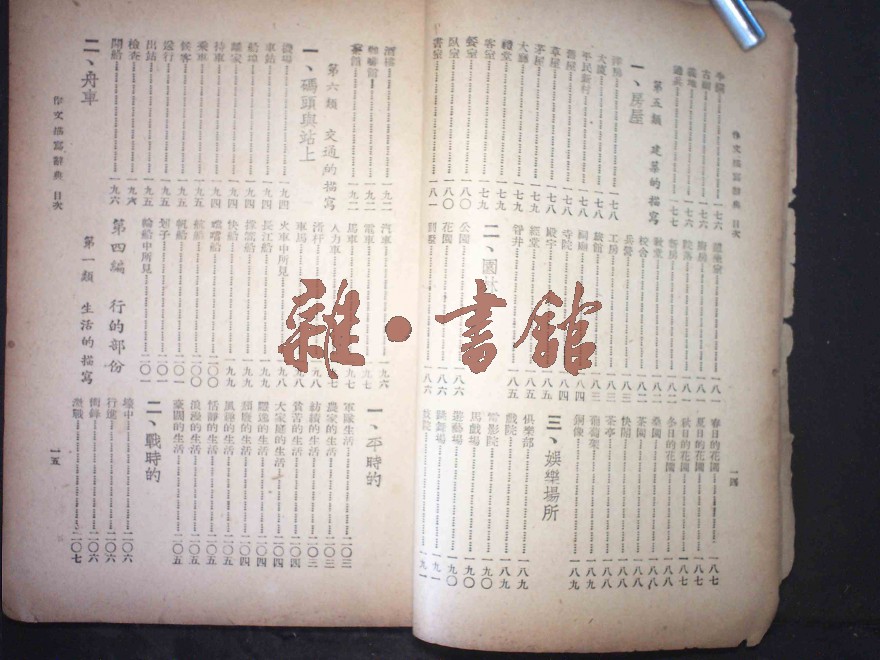 作文描寫辭典 目次
一四
古廟……一七六
墓地……一七七
第五類 建築的描寫
一、房屋
洋房……一七八
大廈……一七八
平民新村……一七八
草屋……一七八
茅屋……一七九
大廳……一七九
禮堂……一七九
客室……一七九
餐室……一八〇
臥室……一八〇
書室……一八一
廚房……一八一
教堂……一八二
校舍……一八二
工房……一八三
旅館……一八三
祠廟……一八四
寺院……一八四
殿宇……一八五
經堂……一八五
二、園林
公園……一八六
花園……一八六
別墅……一八六
春日的花園……一八七
夏日的花園……一八七
秋日的花園……一八七
冬日的花園……一八八
桑園……一八八
茶園……一八八
快閣……一八八
茶亭……一八八
葡萄架……一八九
銅像……一八九
三、娛樂場所
俱樂部……一八九
戲院……一八九
電影院……一九〇
馬戲場……一九〇
遊藝場……一九〇
跳舞場……一九一
妓院……一九一
酒樓……一九二
咖啡館……一九二
第六類 交通的描寫
一、碼頭與站上
機場……一九四
車站……一九四
船埠……一九四
離家……一九四
待車……一九四
乘車……一九五
候客……一九五
送行……一九五
出站……一九五
檢查……一九六
開船……一九六
二、舟車
汽車……一九六
電車……一九七
馬車……一九七
人力車……一九七
滑杆……一九八
車馬……一九八
火車中所見……一九八
長江船……一九八
採菱船……一九九
快船……一九九
嘟嘟船……二〇〇
航船……二〇〇
帆船……二〇一
划子……二〇一
輪船中所見……二〇一
第四編 行的部份
第一類 生活的描寫
一、平時的
軍隊生活……二〇三
農家的生活……二〇三
紡績的生活……二〇三
貧苦的生活……二〇四
大家庭的生活……二〇四
飄逸的生活……二〇四
頹廢的生活……二〇四
風雅的生活……二〇五
恬靜的生活……二〇五
浪漫的生活……二〇五
豪闊的生活……二〇五
二、戰時的
壕中……二〇六
行進……二〇六
衝鋒……二〇六
激戰……二〇七
作文描寫辭典 目次
一五
雜·書館